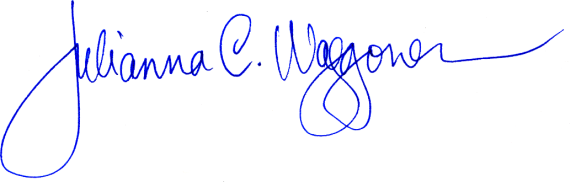 Julianna C. Waggoner